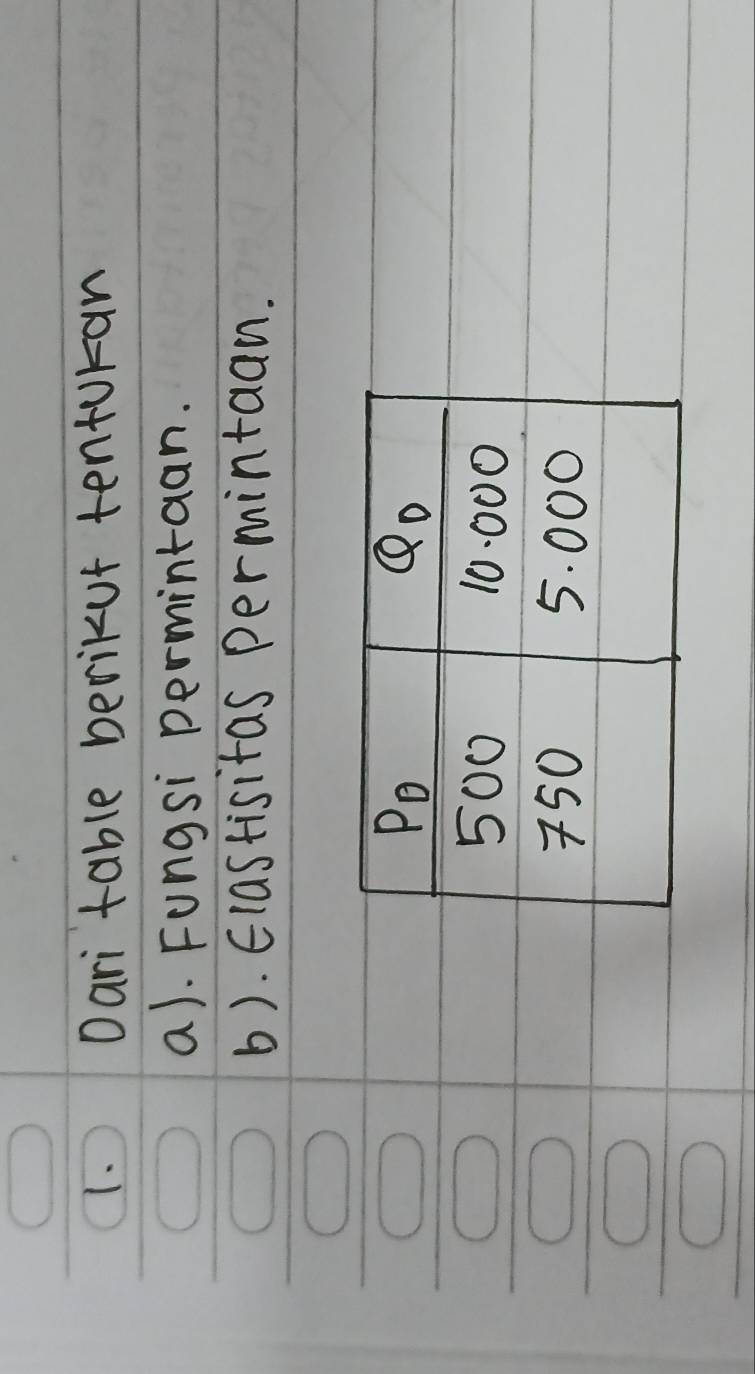 1. Dari table berikut tentukan
a). Fungsi permintaan.
b). Elastisitas permintaan.
PD QD
500 10.000
750 5.000